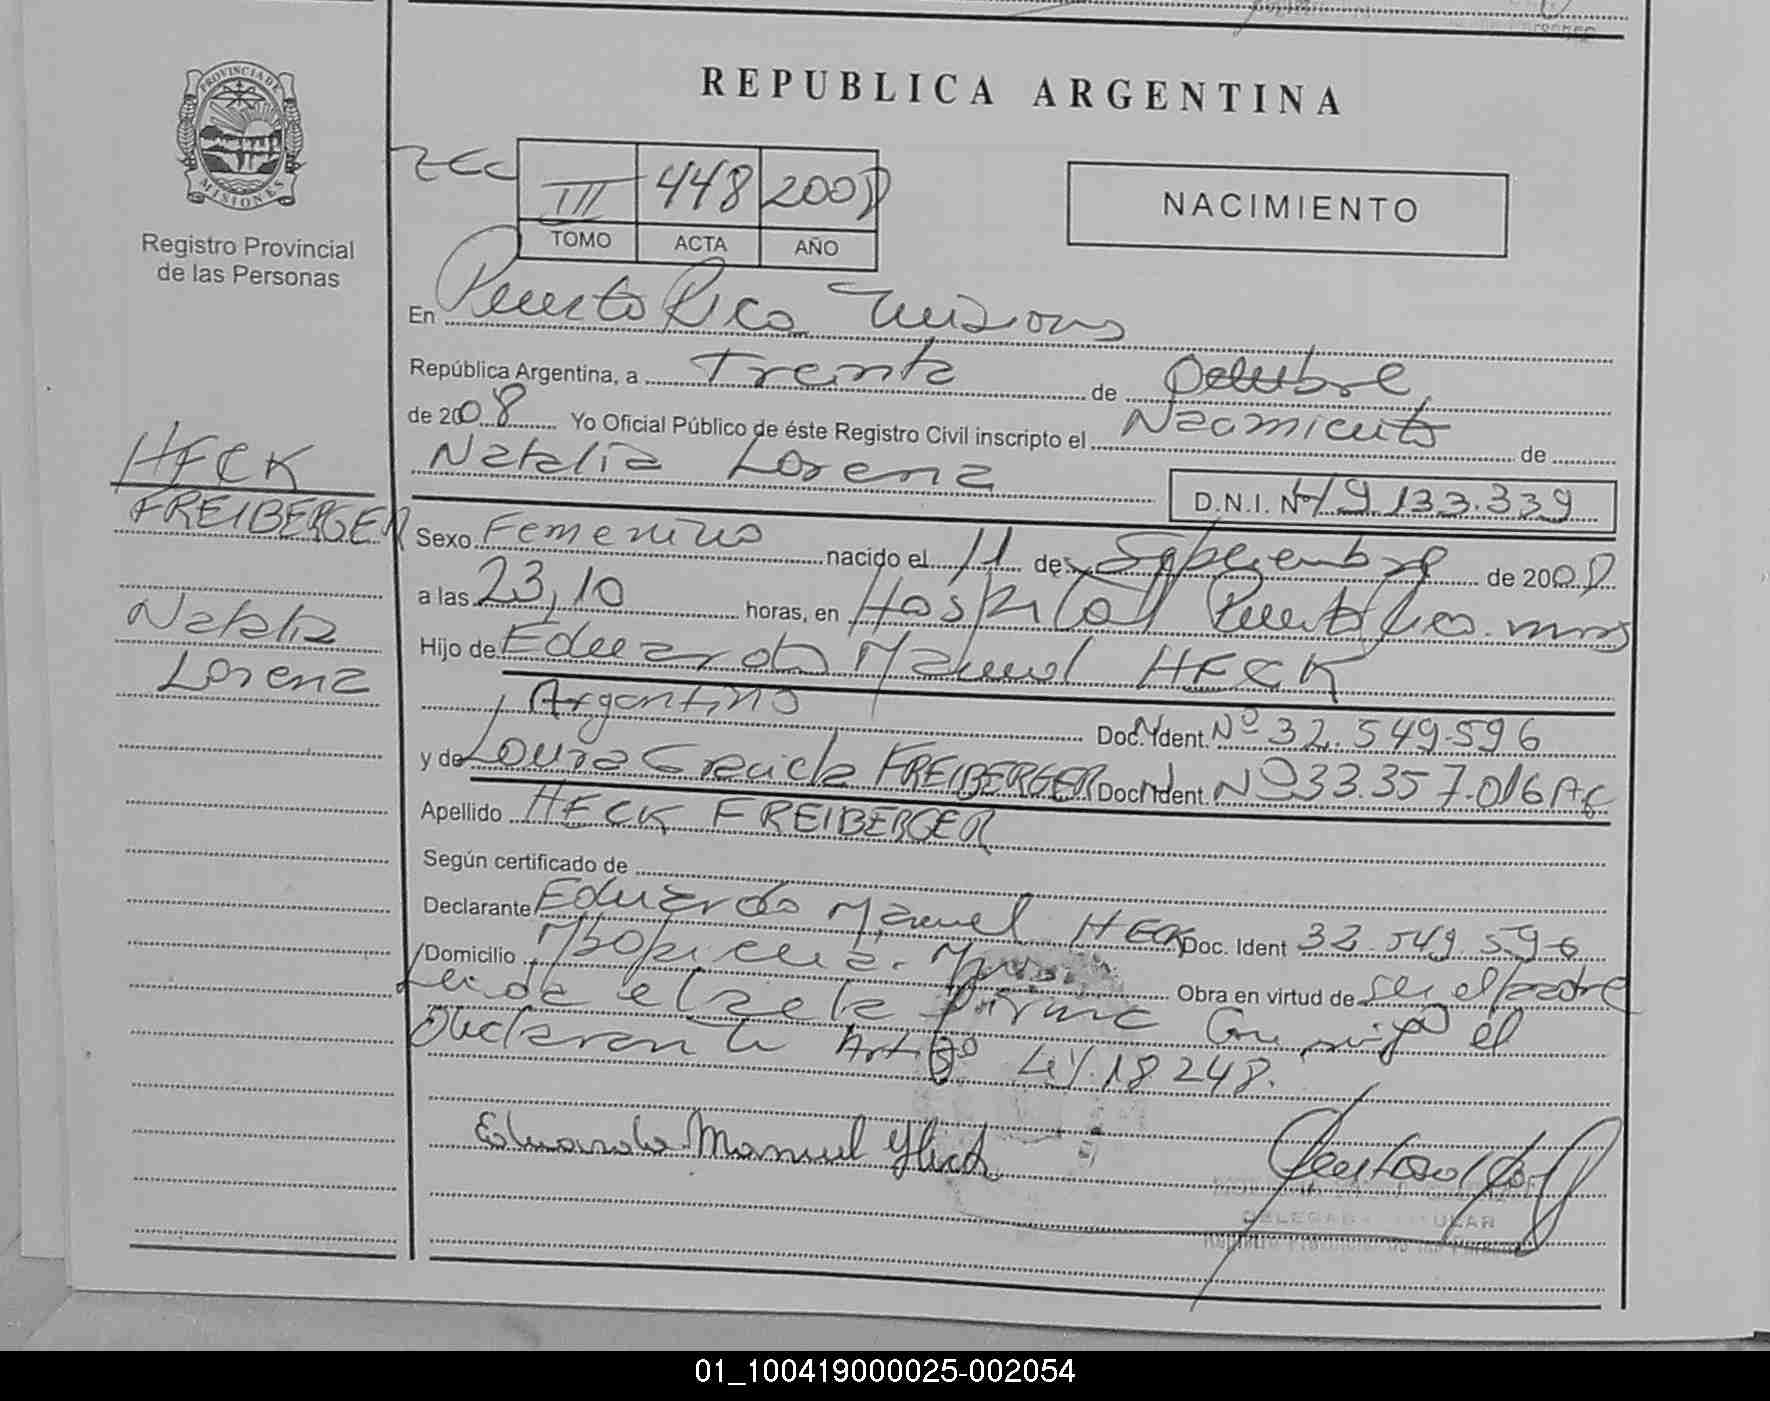 PROVINCIA DE
MISIONES
Registro Provincial
de las Personas
HECK
FREIBERGER
Natalia
Lorena
REPUBLICA ARGENTINA
III 448 2008
TOMO ACTA AÑO
NACIMIENTO
En Puerto Rico Misiones
República Argentina, a Treinta de Octubre
de 2008 Yo Oficial Público de éste Registro Civil inscripto el Nacimiento de
Natalia Lorena D.N.I. Nº 49.133.339
Sexo Femenino nacido el 11 de Septiembre de 2008
a las 23,10 horas, en Hospital Puerto Rico. mnes
Hijo de Eduardo Manuel HECK
Argentino Doc. Ident. Nº 32.549.596
y de Laura Graciela FREIBERGER Doc. Ident. Nº 33.357.016 Ar
Apellido HECK FREIBERGER
Según certificado de
Declarante Eduardo Manuel HECK Doc. Ident 32.549.596
Domicilio Obra en virtud de ser el padre
Leida el acta firma Conmigo el
Declarante Art. Ley. 18248.
Eduardo Manuel Heck
DELEGADA TITULAR
Registro Provincial de las Personas
01_100419000025-002054